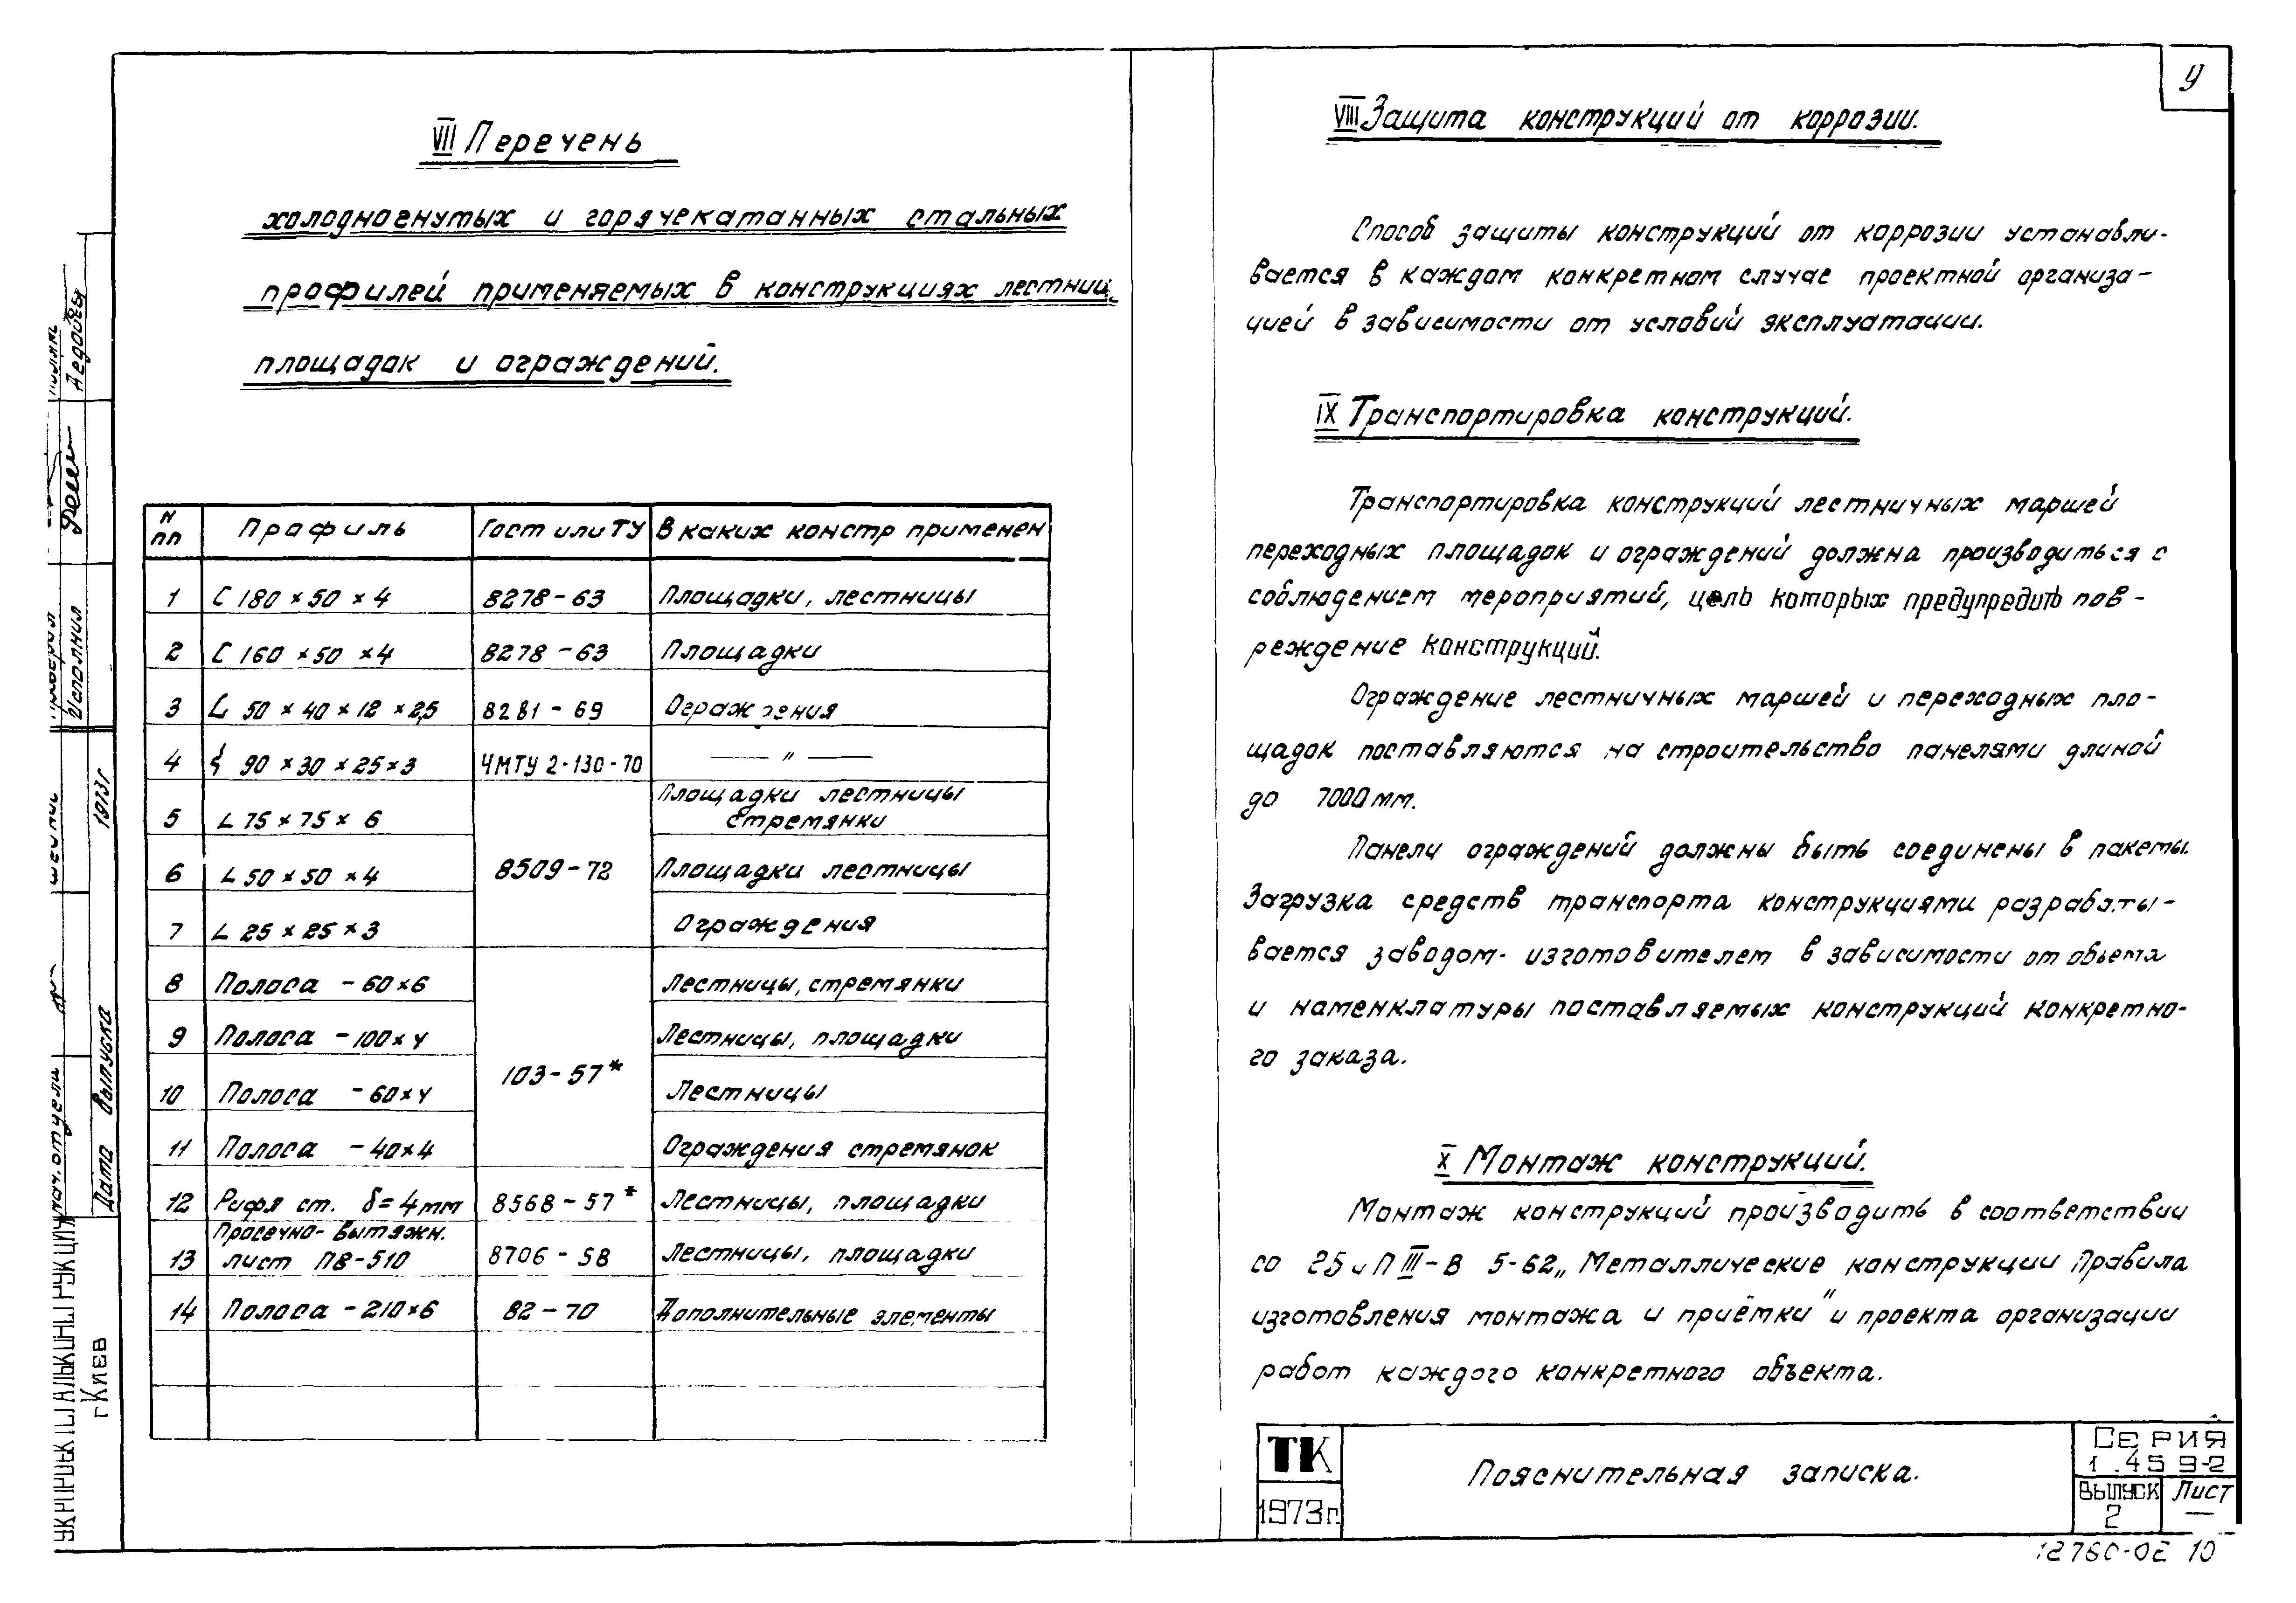 VII Перечень
холодногнутых и горячекатанных стальных
профилей применяемых в конструкциях лестниц,
площадок и ограждений.
N пп Профиль Гост или ТУ В каких констр применен
1 С 180 × 50 × 4 8278-63 Площадки, лестницы
2 С 160 × 50 × 4 8278-63 Площадки
3 L 50 × 40 × 12 × 2,5 8281-69 Ограждения
4 90 × 30 × 25 × 3 ЧМТУ 2-130-70 — " —
5 L 75 × 75 × 6 Площадки лестницы
стремянки
6 L 50 × 50 × 4 8509-72 Площадки лестницы
7 L 25 × 25 × 3 Ограждения
8 Полоса - 60×6 Лестницы, стремянки
9 Полоса - 100×4 Лестницы, площадки
103-57*
10 Полоса - 60×4 Лестницы
11 Полоса - 40×4 Ограждения стремянок
12 Рифл ст. δ=4мм 8568-57* Лестницы, площадки
Просечно-вытяжн.
13 лист ПВ-510 8706-58 Лестницы, площадки
14 Полоса - 210×6 82-70 Дополнительные элементы
у
VIII Защита конструкций от коррозии.
Способ защиты конструкций от коррозии устанавли-
вается в каждом конкретном случае проектной организа-
цией в зависимости от условий эксплуатации.
IX Транспортировка конструкций.
Транспортировка конструкций лестничных маршей
переходных площадок и ограждений должна производиться с
соблюдением мероприятий, цель которых предупредить пов-
реждение конструкций.
Ограждение лестничных маршей и переходных пло-
щадок поставляются на строительство панелями длиной
до 7000мм.
Панели ограждений должны быть соединены в пакеты.
Загрузка средств транспорта конструкциями разрабаты-
вается заводом-изготовителем в зависимости от объема
и номенклатуры поставляемых конструкций конкретно-
го заказа.
X Монтаж конструкций.
Монтаж конструкций производить в соответствии
со III-В 5-62 „Металлические конструкции Правила
изготовления монтажа и приёмки" и проекта организации
работ каждого конкретного объекта.
ТК
1973г.
Пояснительная записка.
Серия
1.459-2
Выпуск
2
Лист
—
12760-02 10
Исполнил
Дата выпуска 1973г
г Киев